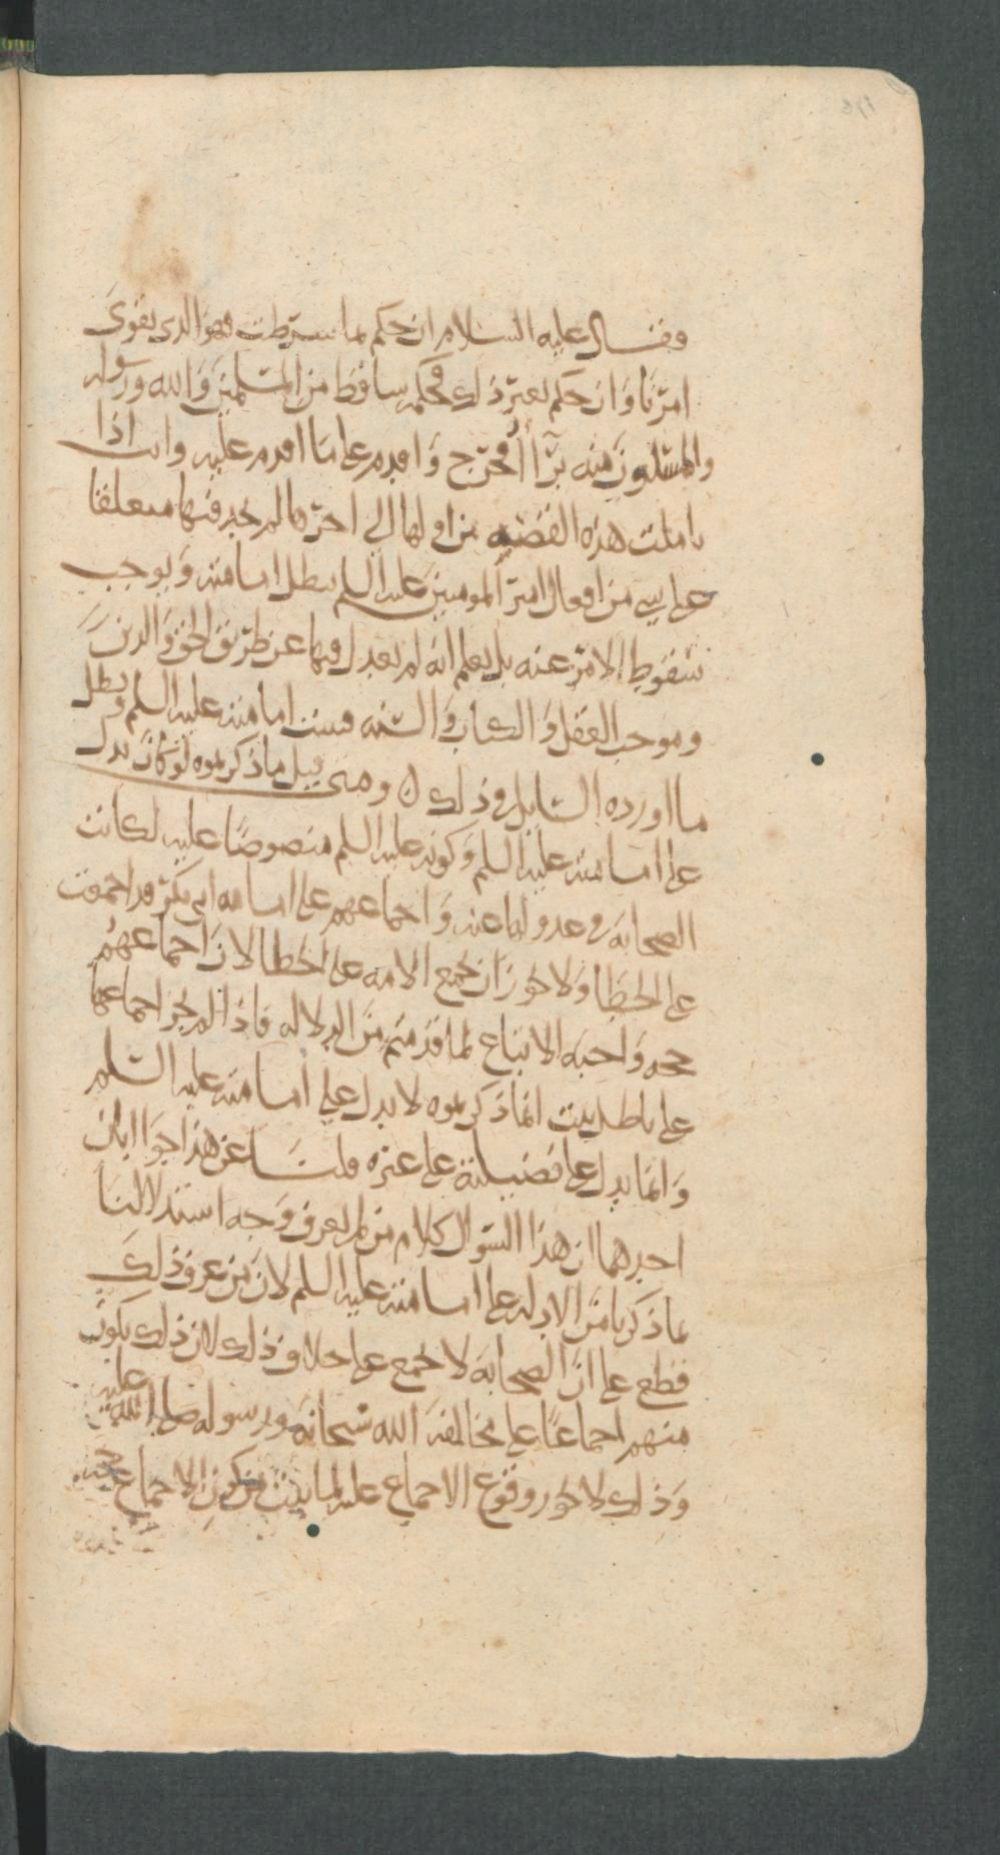 وقال عليه السلام ان حكم بما شرطت فهو الذي يقوى
امرنا وان حكم بغير ذلك فحكمه ساقط من المسلمين والله ورسوله
والمسلمون منه براا فخرج واقدم على ما اقدم عليه وانت اذا
تاملت هذه القضيه من اولها الى اخرها لم تجد فيها متعلقا
على شي من افعال امير المومنين عليه السلم يبطل امامته ويوجب
سقوط الامر عنه بل يعلم انه لم يعدل فيها عن طريق الحق والدين
وموجب العقل والكتاب والسنه فثبت امامته عليه السلم وبطل
ما اورده السايل في ذلك ن ومتى قيل ما ذكرتموه لو كان يدل
على امامته عليه السلم وكونه عليه السلم منصوصا عليه لكانت
الصحابه في عدولها عنه واجماعهم على امامه ابي بكر قد اجمعت
على الخطا ولا يجوز ان تجمع الامه على الخطا لان اجماعهم
حجه واجبه الاتباع لما قدمتم من الدلاله فاذا لم يجز اجماعها
على باطل ثبت ان ما ذكرتموه لا يدل على امامته عليه السلم
وانما يدل على فضيلته على غيره قلنا عن هذا جوابان
احدهما ان هذا السوال كلام من لم يعرف وجه استدلالنا
بما ذكرنا من الادله على امامته عليه السلم لان من عرف ذلك
قطع على ان الصحابه لا تجمع على خلاف ذلك لان ذلك يكون
منهم اجماعا على مخالفه الله سبحانه ورسوله صلى الله عليه
وذلك لا يجوز وقوع الاجماع عليه لما ثبت من كون الاجماع حجه